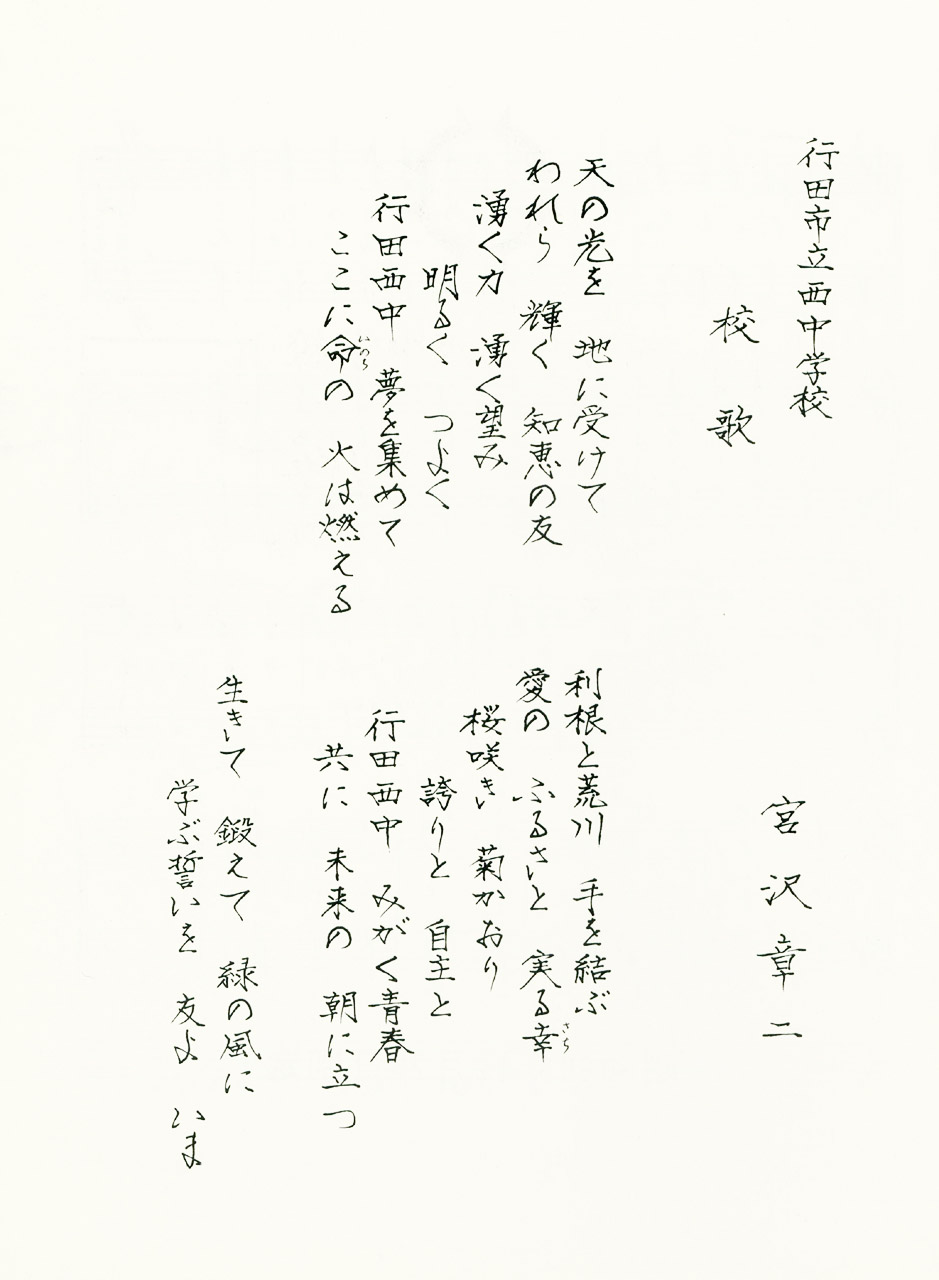 行田市立西中学校
校 歌
宮沢章二
天の光を 地に受けて
われら 輝く 知恵の友
湧く力 湧く望み
明るく つよく
行田西中 夢を集めて
ここに命の 火は燃える
いのち
利根と荒川 手を結ぶ
愛の ふるさと 実る幸
さち
桜咲き 菊かおり
誇りと 自主と
行田西中 みがく青春
共に 未来の 朝に立つ
生きて 鍛えて 緑の風に
学ぶ誓いを 友よ いま